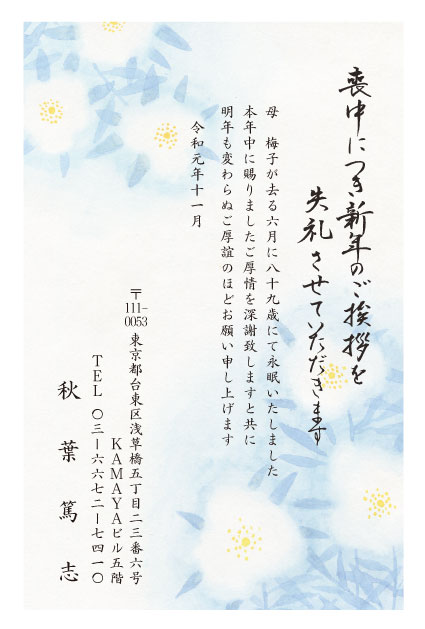 喪中につき新年のご挨拶を
失礼させていただきます
母　梅子が去る六月に八十九歳にて永眠いたしました
本年中に賜りましたご厚情を深謝致しますと共に
明年も変わらぬご厚誼のほどお願い申し上げます
令和元年十一月
〒111-0053 東京都台東区浅草橋五丁目二三番六号
KAMAYAビル五階
TEL 〇三ー六六七二ー七四一〇
秋葉篤志